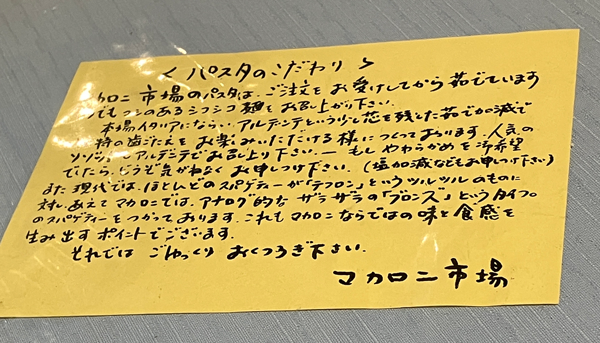 <パスタのこだわり>
カロニ市場のパスタは、ご注文をお受けしてから茹でています
でもコシのあるシコシコ麺をお召し上がり下さい。
本場イタリアにならい、アルデンテという少し芯を残した茹で加減で
特の歯ごたえをお楽しみいただける様につくっております。人気の
アルデンテでお召し上り下さい。ー もしやわらかめを御希望
でしたら、どうぞ気がねなくお申しつけ下さい。(塩加減などもお申しつけ下さい)
また現代では、ほとんどのスパゲティーが「テフロン」というツルツルのものに
対し、あえてマカロニでは、アナログ的なザラザラの「ブロンズ」というタイプ。
のスパゲティーをつかっております。これもマカロニならではの味と食感を
生み出すポイントでございます。
それでは ごゆっくり おくつろぎ下さい。
マカロニ市場